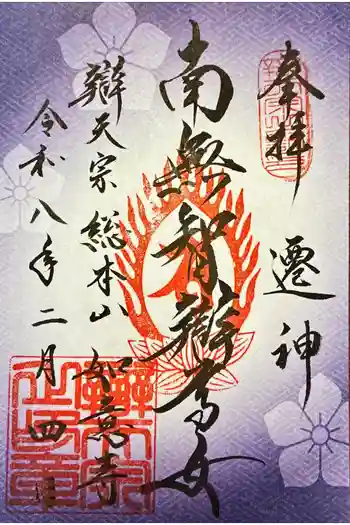 奉拝 遷神
南無智辯尊女
辯天宗 総本山 如意寺
令和八年二月四日